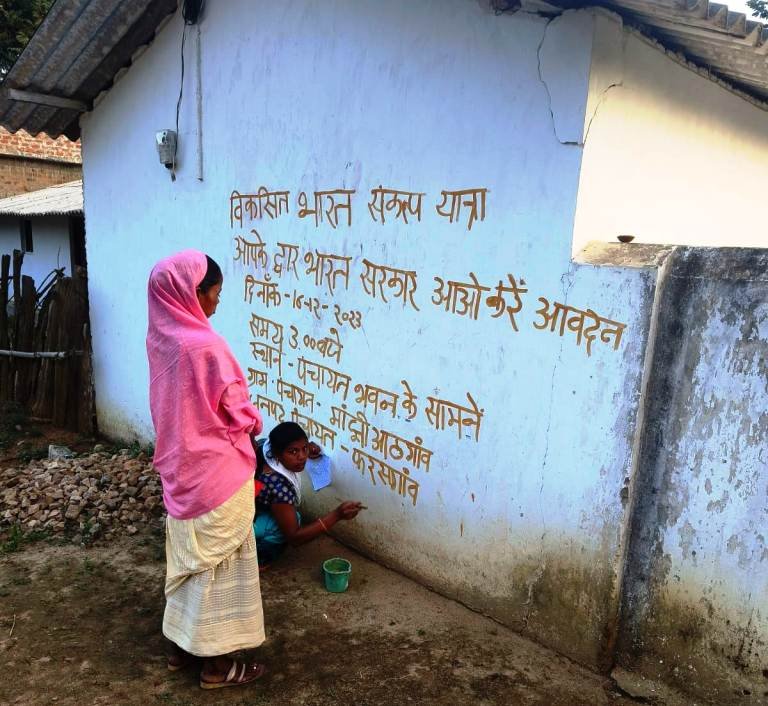 विकसित भारत संकल्प यात्रा
आपके द्वार भारत सरकार आओ करें आवदेन
दिनाँक - १८-१२- २०२३
समय 3.00 बजे
स्थान - पंचायत भवन के सामनें
ग्राम पंचायत - मांझी आठगांव
पंचायत - फरसगांव